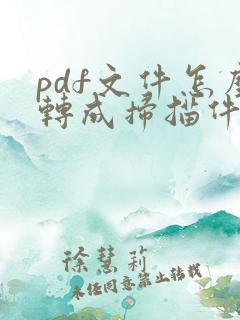 pdf文件怎麼
轉成掃描件
徐慧莉
未經同意禁止轉載